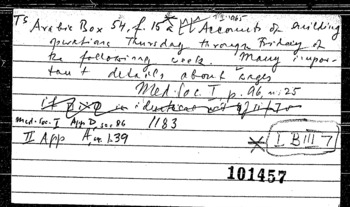 TS Arabic Box 54, f. 15 Accounts of building
operations Thursday through Friday of
the following week. Many impor-
tant details about wages
Med. Soc. I p. 96, n. 25
Med. Soc. I App. D, sec. 86 1183
II App A 139
I B III 7
101457